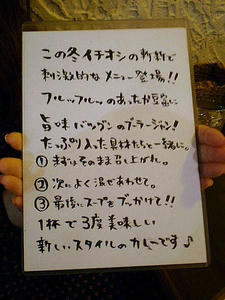 この冬イチオシの斬新で
刺激的なメニュー登場!!
フルッフルッのあったか豆腐に
旨味バツグンのプーラージャン!
たっぷり入った具材たちと一緒に。
①まずはそのまま召し上がれ。
②次によく混ぜあわせて。
③最後にスープをブッかけて!!
1杯で3度美味しい
新しいスタイルのカレーです♪